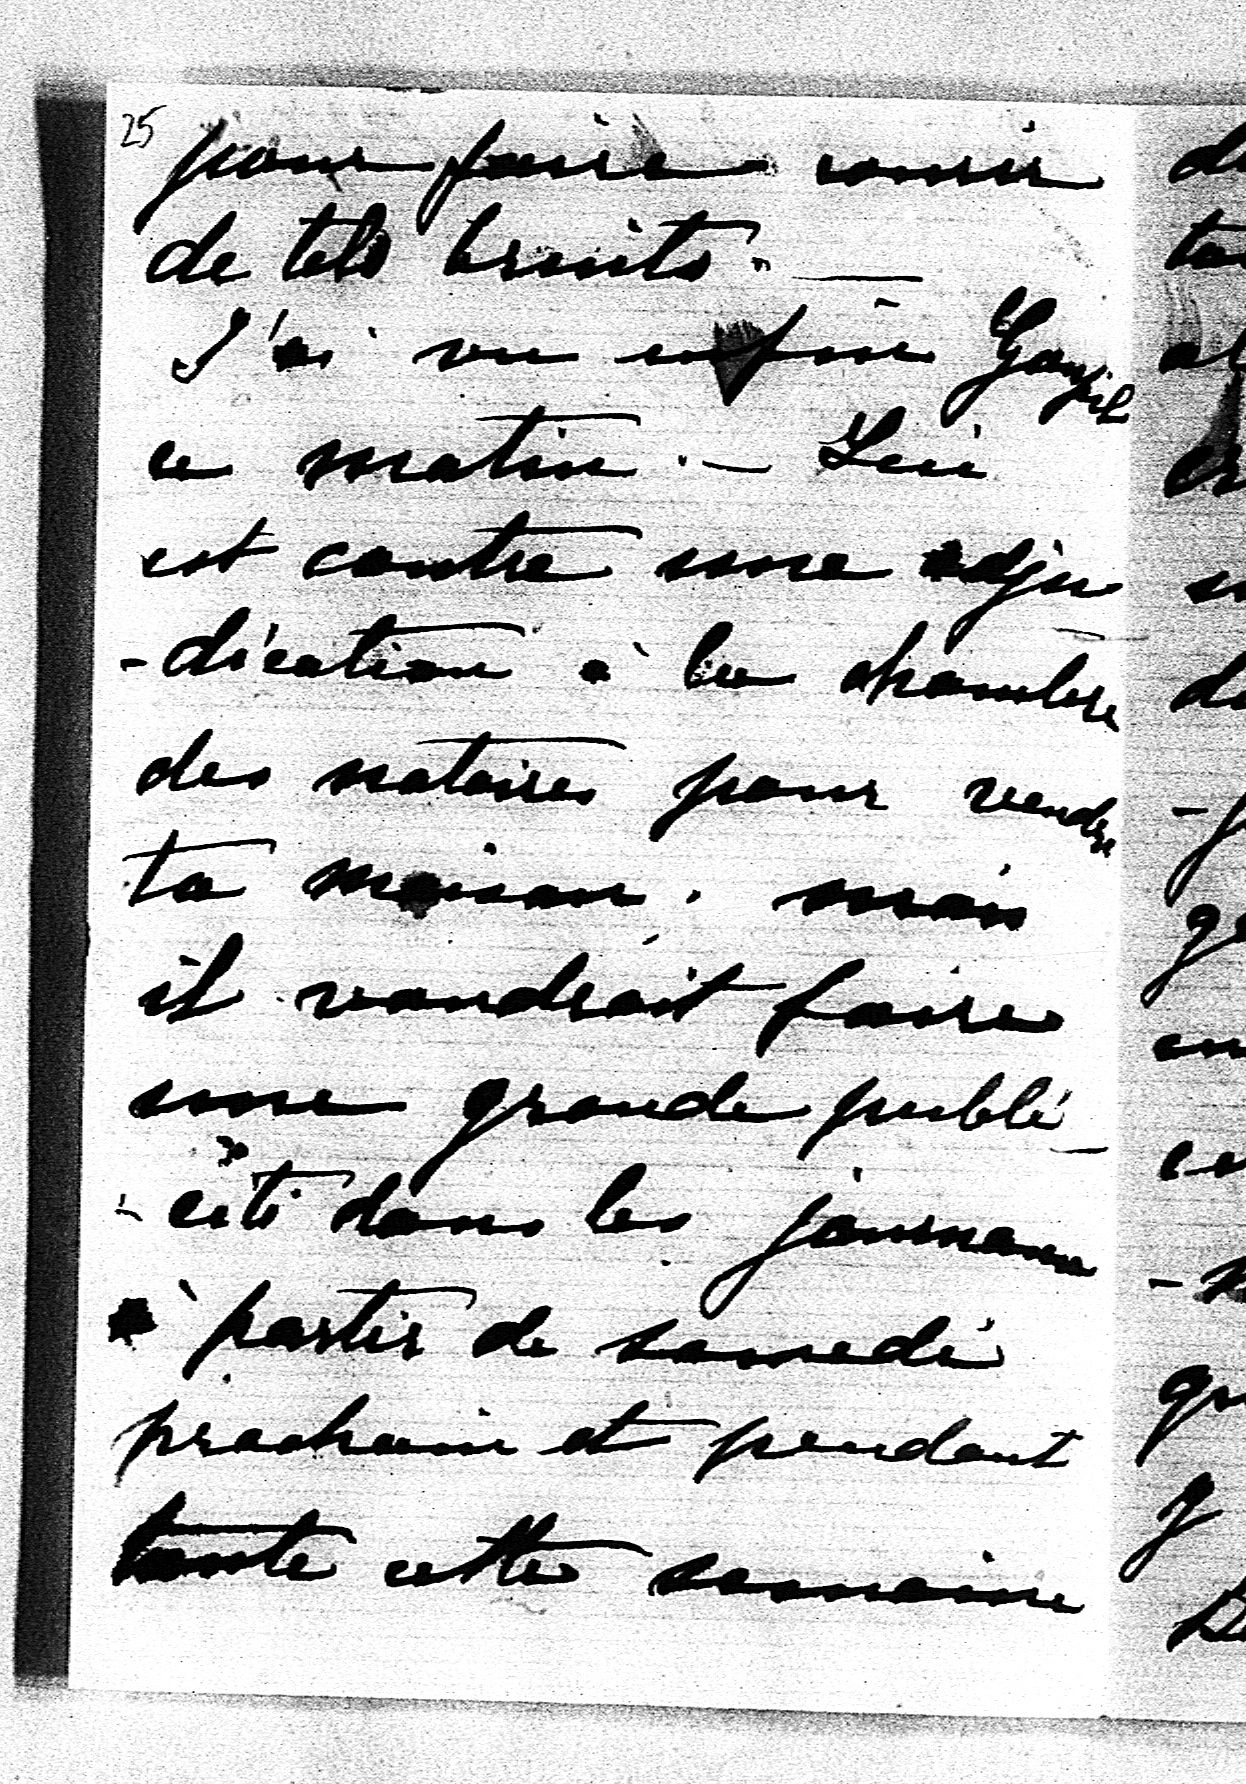 25
pour faire courir
de tels bruits. —
J'ai vu enfin Goupil
ce matin. — Lui
est contre une adju
-dication à la chambre
des notaires pour vendre
ta maison. mais
il voudrait faire
une grande publi
-cité dans les journaux
à partir de samedi
prochain et pendant
toute cette semaine